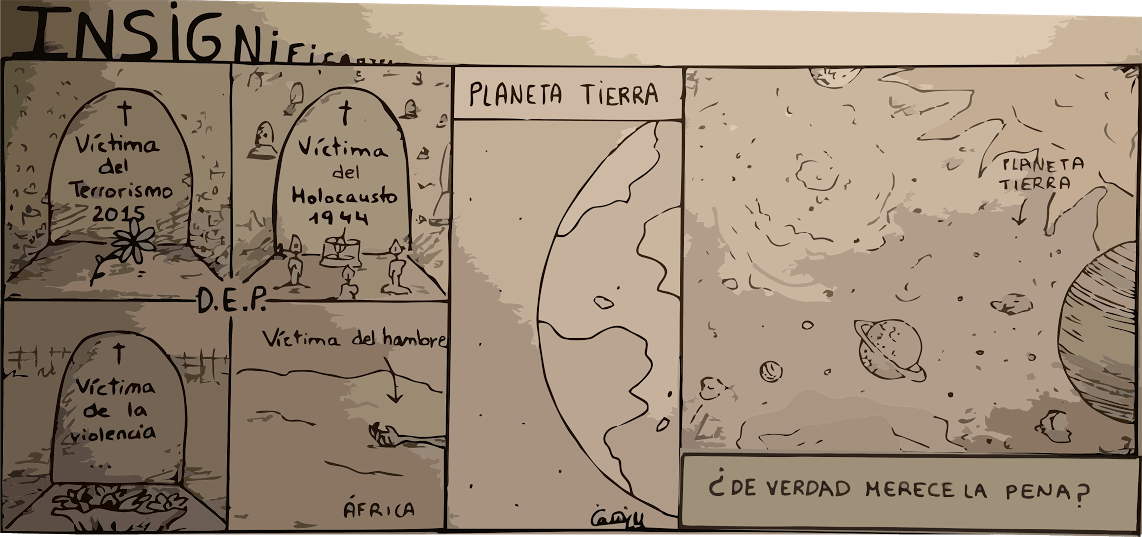 INSIGNIFICANTES
Víctima
del
Terrorismo
2015
Víctima
del
Holocausto
1944
D.E.P.
Víctima
de la
violencia
...
Víctima del hambre
ÁFRICA
PLANETA TIERRA
PLANETA
TIERRA
¿DE VERDAD MERECE LA PENA?